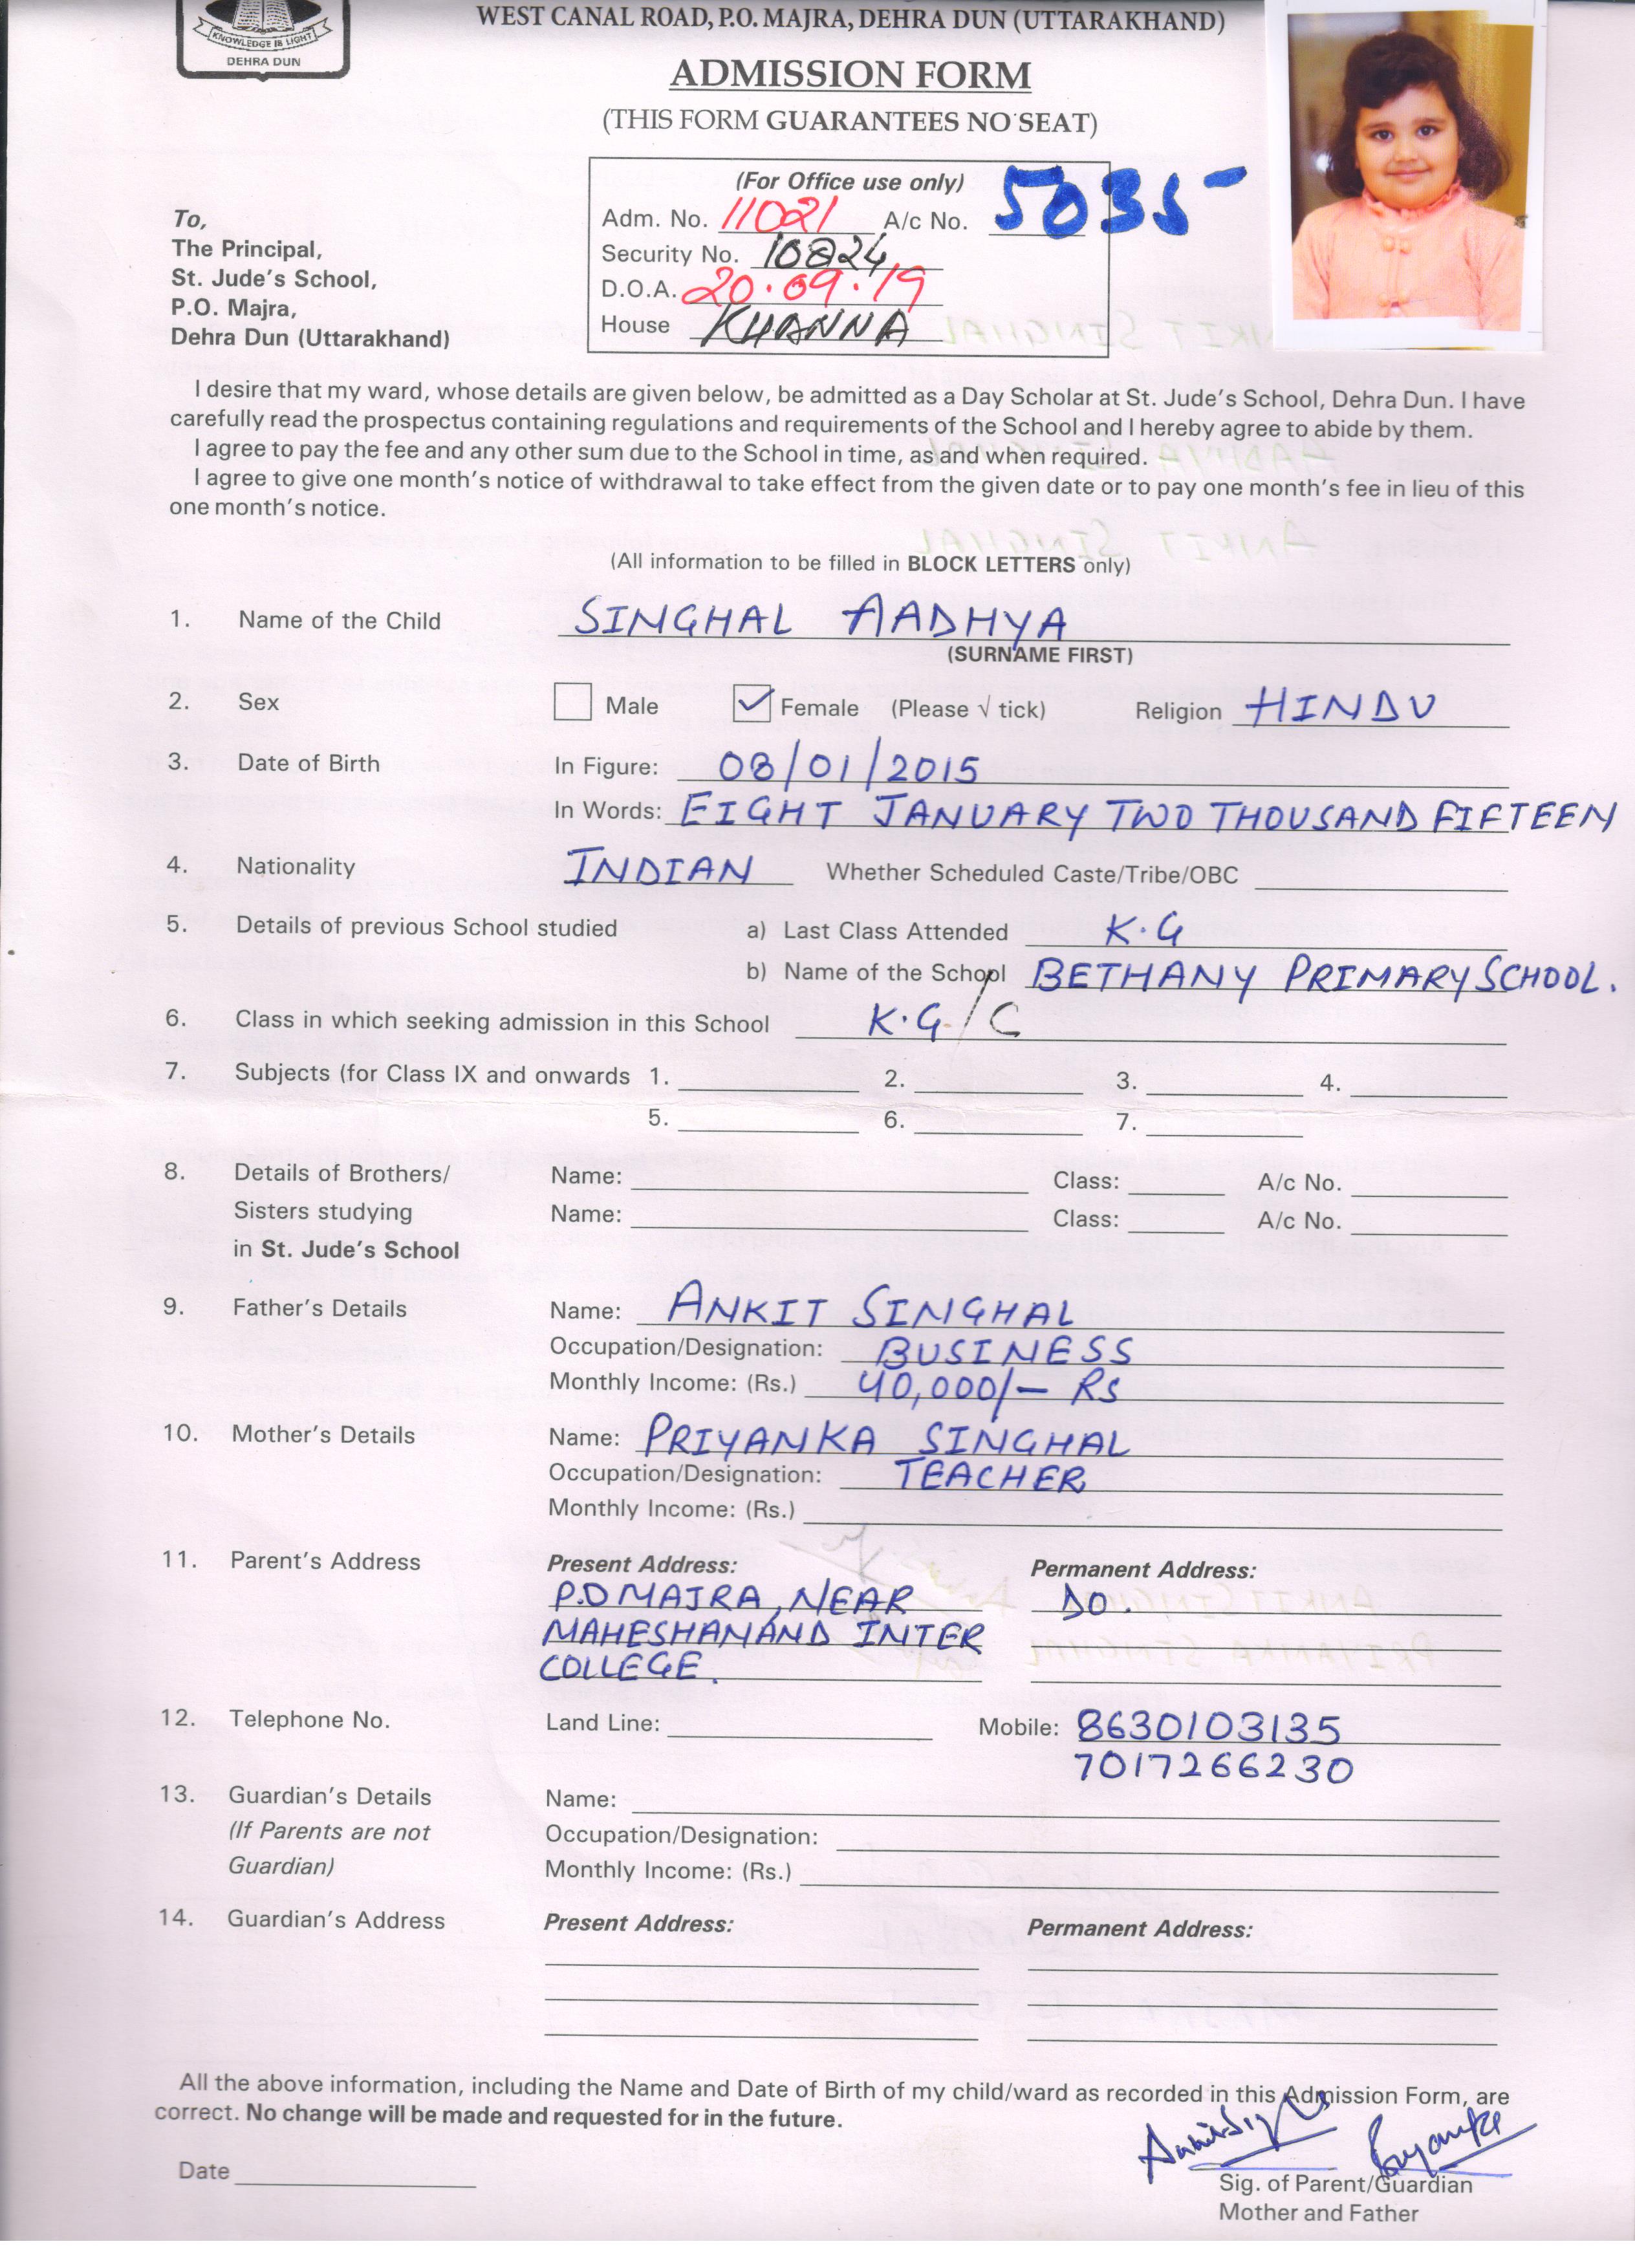 KNOWLEDGE IS LIGHT
DEHRA DUN
WEST CANAL ROAD, P.O. MAJRA, DEHRA DUN (UTTARAKHAND)
ADMISSION FORM
(THIS FORM GUARANTEES NO SEAT)
(For Office use only)
Adm. No. 11021 A/c No. 5035
Security No. 10824
D.O.A. 20.09.19
House KHANNA
To,
The Principal,
St. Jude's School,
P.O. Majra,
Dehra Dun (Uttarakhand)
I desire that my ward, whose details are given below, be admitted as a Day Scholar at St. Jude's School, Dehra Dun. I have
carefully read the prospectus containing regulations and requirements of the School and I hereby agree to abide by them.
I agree to pay the fee and any other sum due to the School in time, as and when required.
I agree to give one month's notice of withdrawal to take effect from the given date or to pay one month's fee in lieu of this
one month's notice.
(All information to be filled in BLOCK LETTERS only)
1. Name of the Child SINGHAL AADHYA
(SURNAME FIRST)
2. Sex Male ✓ Female (Please √ tick) Religion HINDU
3. Date of Birth In Figure: 08/01/2015
In Words: EIGHT JANUARY TWO THOUSAND FIFTEEN
4. Nationality INDIAN Whether Scheduled Caste/Tribe/OBC
5. Details of previous School studied a) Last Class Attended K.G
b) Name of the School BETHANY PRIMARY SCHOOL.
6. Class in which seeking admission in this School K.G/C
7. Subjects (for Class IX and onwards 1. 2. 3. 4.
5. 6. 7.
8. Details of Brothers/ Name: Class: A/c No.
Sisters studying Name: Class: A/c No.
in St. Jude's School
9. Father's Details Name: ANKIT SINGHAL
Occupation/Designation: BUSINESS
Monthly Income: (Rs.) 40,000/- Rs
10. Mother's Details Name: PRIYANKA SINGHAL
Occupation/Designation: TEACHER
Monthly Income: (Rs.)
11. Parent's Address Present Address: Permanent Address:
P.O MAJRA, NEAR DO.
MAHESHANAND INTER
COLLEGE.
12. Telephone No. Land Line: Mobile: 8630103135
7017266230
13. Guardian's Details Name:
(If Parents are not Occupation/Designation:
Guardian) Monthly Income: (Rs.)
14. Guardian's Address Present Address: Permanent Address:
All the above information, including the Name and Date of Birth of my child/ward as recorded in this Admission Form, are
correct. No change will be made and requested for in the future.
Priyanka
Date
Sig. of Parent/Guardian
Mother and Father